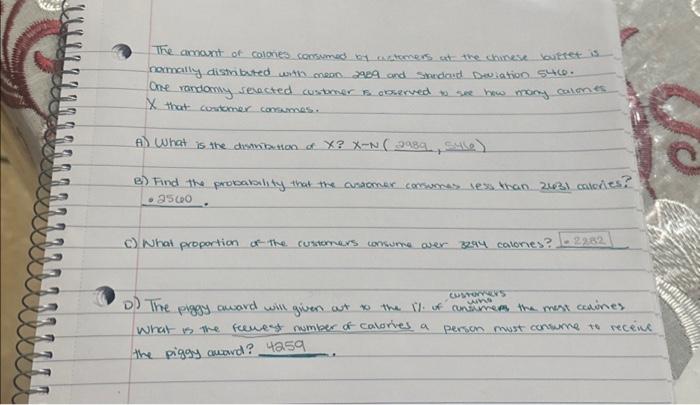 The amount of calories consumed by customers at the chinese buffet is
normally distributed with mean 2989 and standard Deviation 546.
One randomly selected customer is observed to see how many calories
X that customer consumes.
A) What is the distribution of X? X~N( 2989 , 546 )
B) Find the probability that the customer consumes less than 2631 calories?
.2560 .
C) What proportion of the customers consume over 3294 calories? .2882
D) The piggy award will given out to the 1% of customers who the most calories
What is the fewest number of calories a person must consume to receive
the piggy award? 4259 .